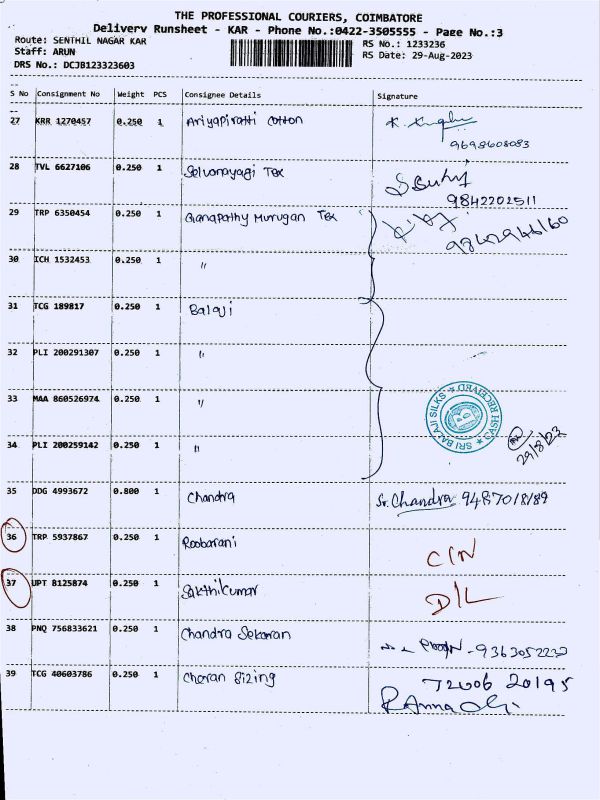 THE PROFESSIONAL COURIERS, COIMBATORE
Delivery Runsheet - KAR - Phone No.:0422-3505555 - Page No.:3
Route: SENTHIL NAGAR KAR RS No.: 1233236
Staff: ARUN RS Date: 29-Aug-2023
DRS No.: DCJB123323603
S No Consignment No Weight PCS Consignee Details Signature
27 KRR 1270457 0.250 1 Ariyapiratti cotton
9698608083
28 TVL 6627106 0.250 1 Selvanayagi Tex
9842202511
29 TRP 6350454 0.250 1 Ganapathy Murugan Tex
9842946160
30 ICH 1532453 0.250 1 "
31 TCG 189817 0.250 1 Balaji
32 PLI 200291307 0.250 1 "
33 MAA 860526974 0.250 1 "
SRI BALAJI SILKS ★ CASH RECEIVED ★
34 PLI 200259142 0.250 1 "
29/8/23
35 DDG 4993672 0.800 1 Chandra Sr. Chandra 9487018189
36 TRP 5937867 0.250 1 Roobarani C/N
37 UPT 8125874 0.250 1 Sakthikumar D/L
38 PNQ 756833621 0.250 1 Chandra Sekaran 9363052232
39 TCG 40603786 0.250 1 Cheran Sizing 72006 20195